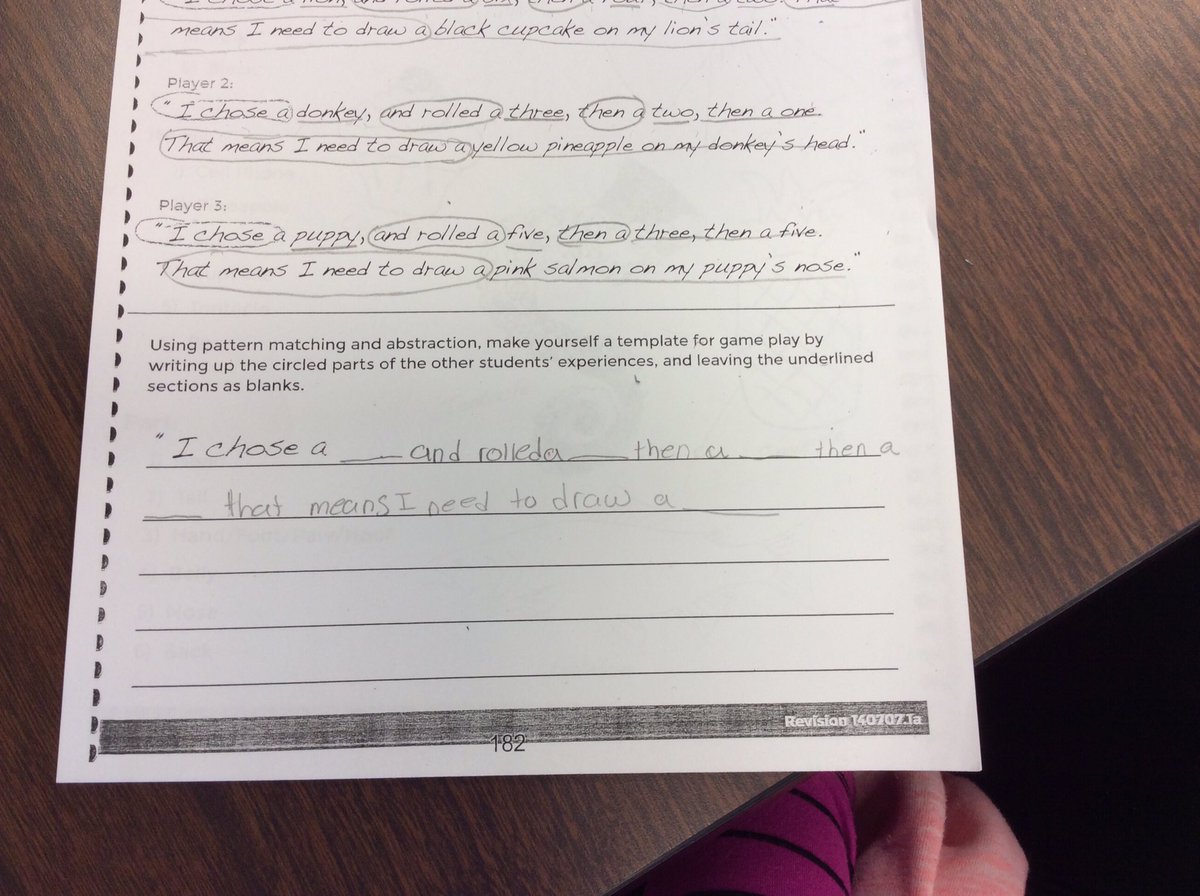 means I need to draw a black cupcake on my lion's tail."
Player 2:
"I chose a donkey, and rolled a three, then a two, then a one.
That means I need to draw a yellow pineapple on my donkey's head."
Player 3:
"I chose a puppy, and rolled a five, then a three, then a five.
That means I need to draw a pink salmon on my puppy's nose."
Using pattern matching and abstraction, make yourself a template for game play by
writing up the circled parts of the other students' experiences, and leaving the underlined
sections as blanks.
"I chose a ___ and rolleda ___ then a ___ then a
___ that means I need to draw a ___
Revision 140707.1a
182